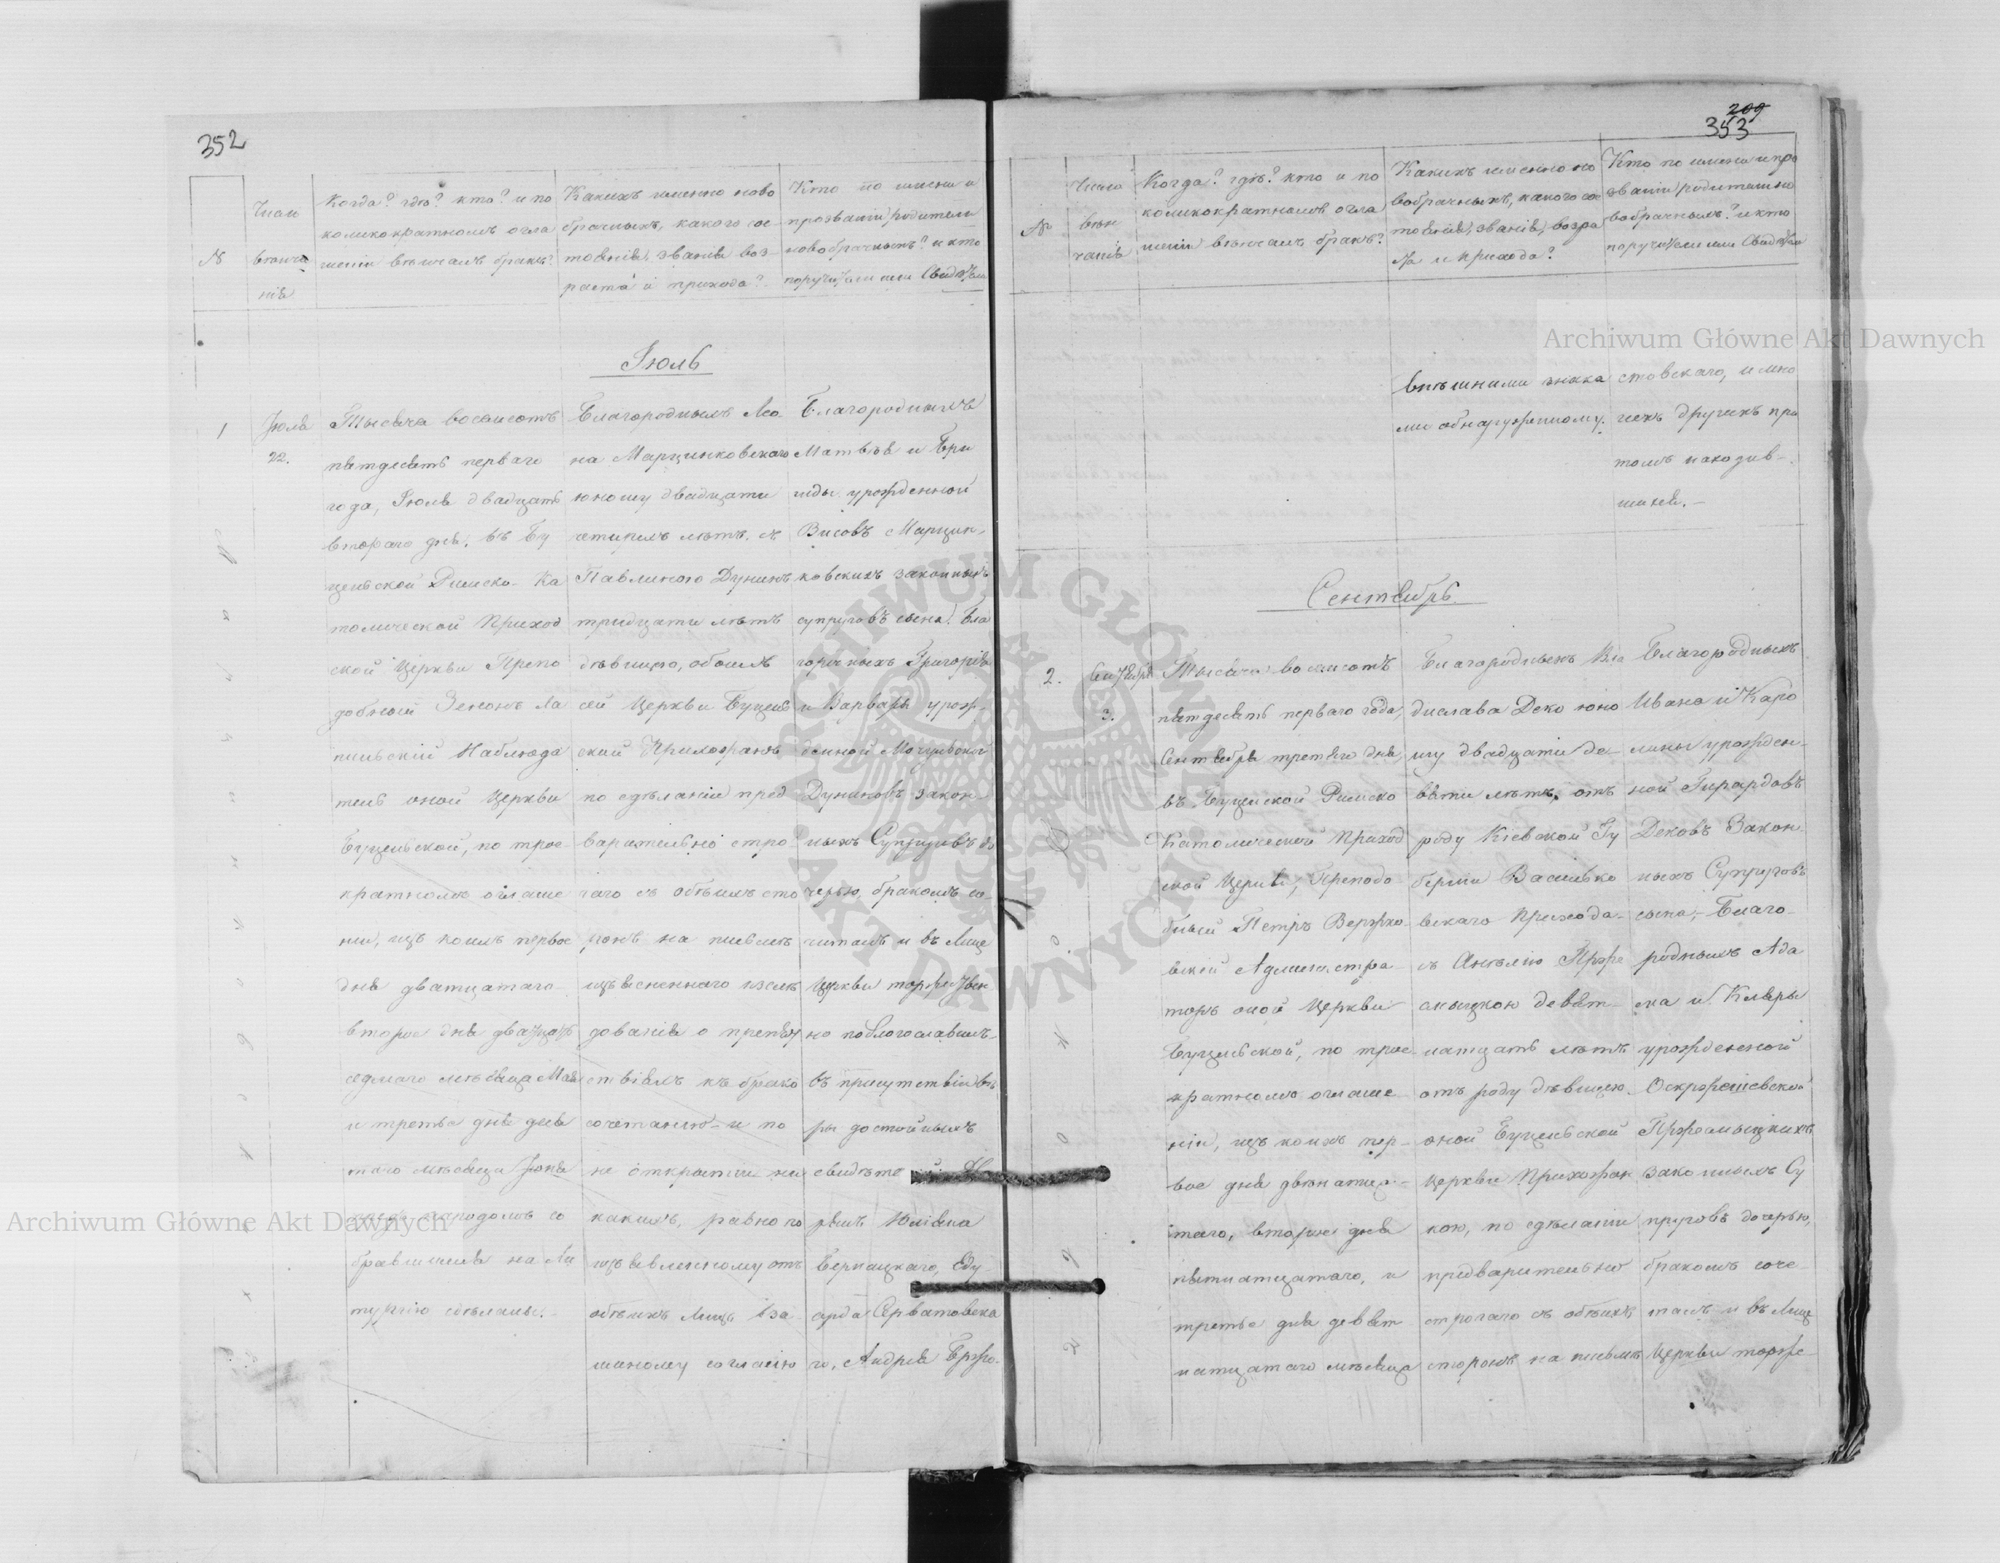 352
№
Число
вѣнча
нія
Когда? гдѣ? кто? и по
коликократномъ огла
шеніи вѣнчалъ бракъ?
Какихъ именно ново
брачныхъ, какого сос
тоянія, званія воз-
раста и прихода?
Кто по имени и
прозванію родители
новобрачныхъ? и кто
поручители или Свидѣтели
Іюль
1
Іюля
22.
Тысяча восемсотъ
пятдесятъ перваго
года, Іюля двадцать
втораго дня. въ Бу
цевской Римско-Ка
толической Приход
ской Церкви Препо
добный Зенонъ Ла
Наблюда
тель оной Церкви
Буцевской, по трое-
кратномъ оглаше
ніи, изъ коихъ первое
дня дватцатаго
второе дня двадцать
седмаго мѣсяца Мая
и третье дня девя
таго мѣсяца Іюня
предъ народомъ со
бравшимся на Ли
тургію сдѣланы.
Благороднымъ Лео
на Марцинковскаго
юному двадцати
четырехъ лѣтъ. съ
Павлиною Дунинъ
тридцати лѣтъ
дѣвицею, обоихъ
сей Церкви Буцев
ской Прихожанъ
по сдѣланіи пред
варительно стро
гаго съ обѣихъ сто
ронъ на письмѣ
изъясненнаго изслѣ
дованія о препят
ствіяхъ къ брако
сочетанію и по
не открытіи ни
какихъ, равно по
изъявленному отъ
обѣихъ Лицъ вза
имному согласію
Благородныхъ
Матвѣя и Бри
гиды урожденной
Висовъ Марцин-
ковскихъ законныхъ
супруговъ сына. Бла
городныхъ Григорія
и Варвары урож-
денной
Дуниновъ закон
ныхъ Супруговъ до
черью, бракомъ со-
читалъ и въ Лице
Церкви торжествен
но поблогославилъ-
въ присутствіи вѣ
ры достойныхъ
свидѣте
рехъ Юліяна
Бернацкаго, Еду
арда Серватовска
го, Андрея Бржо-
209
353
№
Число
вѣн
чанія
Когда? гдѣ? кто и по
коликократномъ огла
шеніи вѣнчалъ бракъ?
Какихъ именно но
вобрачныхъ, какого со
тоянія, званія, возра
ста и прихода?
Кто по имени и про
званію родители но
вобрачныхъ? и кто
поручители или Свидѣтели
внѣшними знака
ми обнаруженному.
стовскаго, и мно
гихъ другихъ при
томъ находив-
шихся.-
Сентябрь.
2.
Сентября
3.
Тысяча восемсотъ
пятдесятъ перваго года,
Сентября третьяго дня,
въ Буцевской Римско
Католической Приход
ской Церкви, Преподо
бный Петръ Вержхо-
вскій Администра-
торъ оной Церкви
Буцевской, по трое-
кратномъ оглаше
ніи, изъ коихъ пер-
вое дня двѣнатца-
таго, второе дня
пятнатцатаго, и
третье дня девят
натцатаго мѣсяца
Благородныхъ Вла
дислава Деко юно
шу двадцати де-
вяти лѣтъ, отъ
роду Кіевской Гу
берніи Василько
вскаго прихода-
съ Анелею Прже
мыцкою девят-
натцать лѣтъ
отъ роду дѣвицею
оной Буцевской
Церкви Прихожан
кою, по сдѣланіи
предварительно
строгаго съ обѣихъ
сторонъ на письмѣ
Благородныхъ
Ивана и Каро
лины урожден-
ной Гирардовъ
Дековъ Закон
ныхъ Супруговъ
сына,- Благо-
родныхъ Ада
ма и Клары
урожденной
Пржемыцкихъ
законныхъ Су
пруговъ дочерью,
бракомъ соче-
талъ и въ Лице
Церкви торже-
Archiwum Główne Akt Dawnych
Archiwum Główne Akt Dawnych
ARCHIWUM GŁÓWNE AKT DAWNYCH